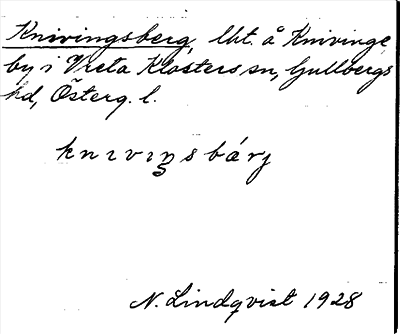 Knivingsberg, lht. å Knivinge
by i Vreta Klosters sn, Gullbergs
hd, Österg. l.
knɩvɩŋsbærj
N. Lindqvist 1928